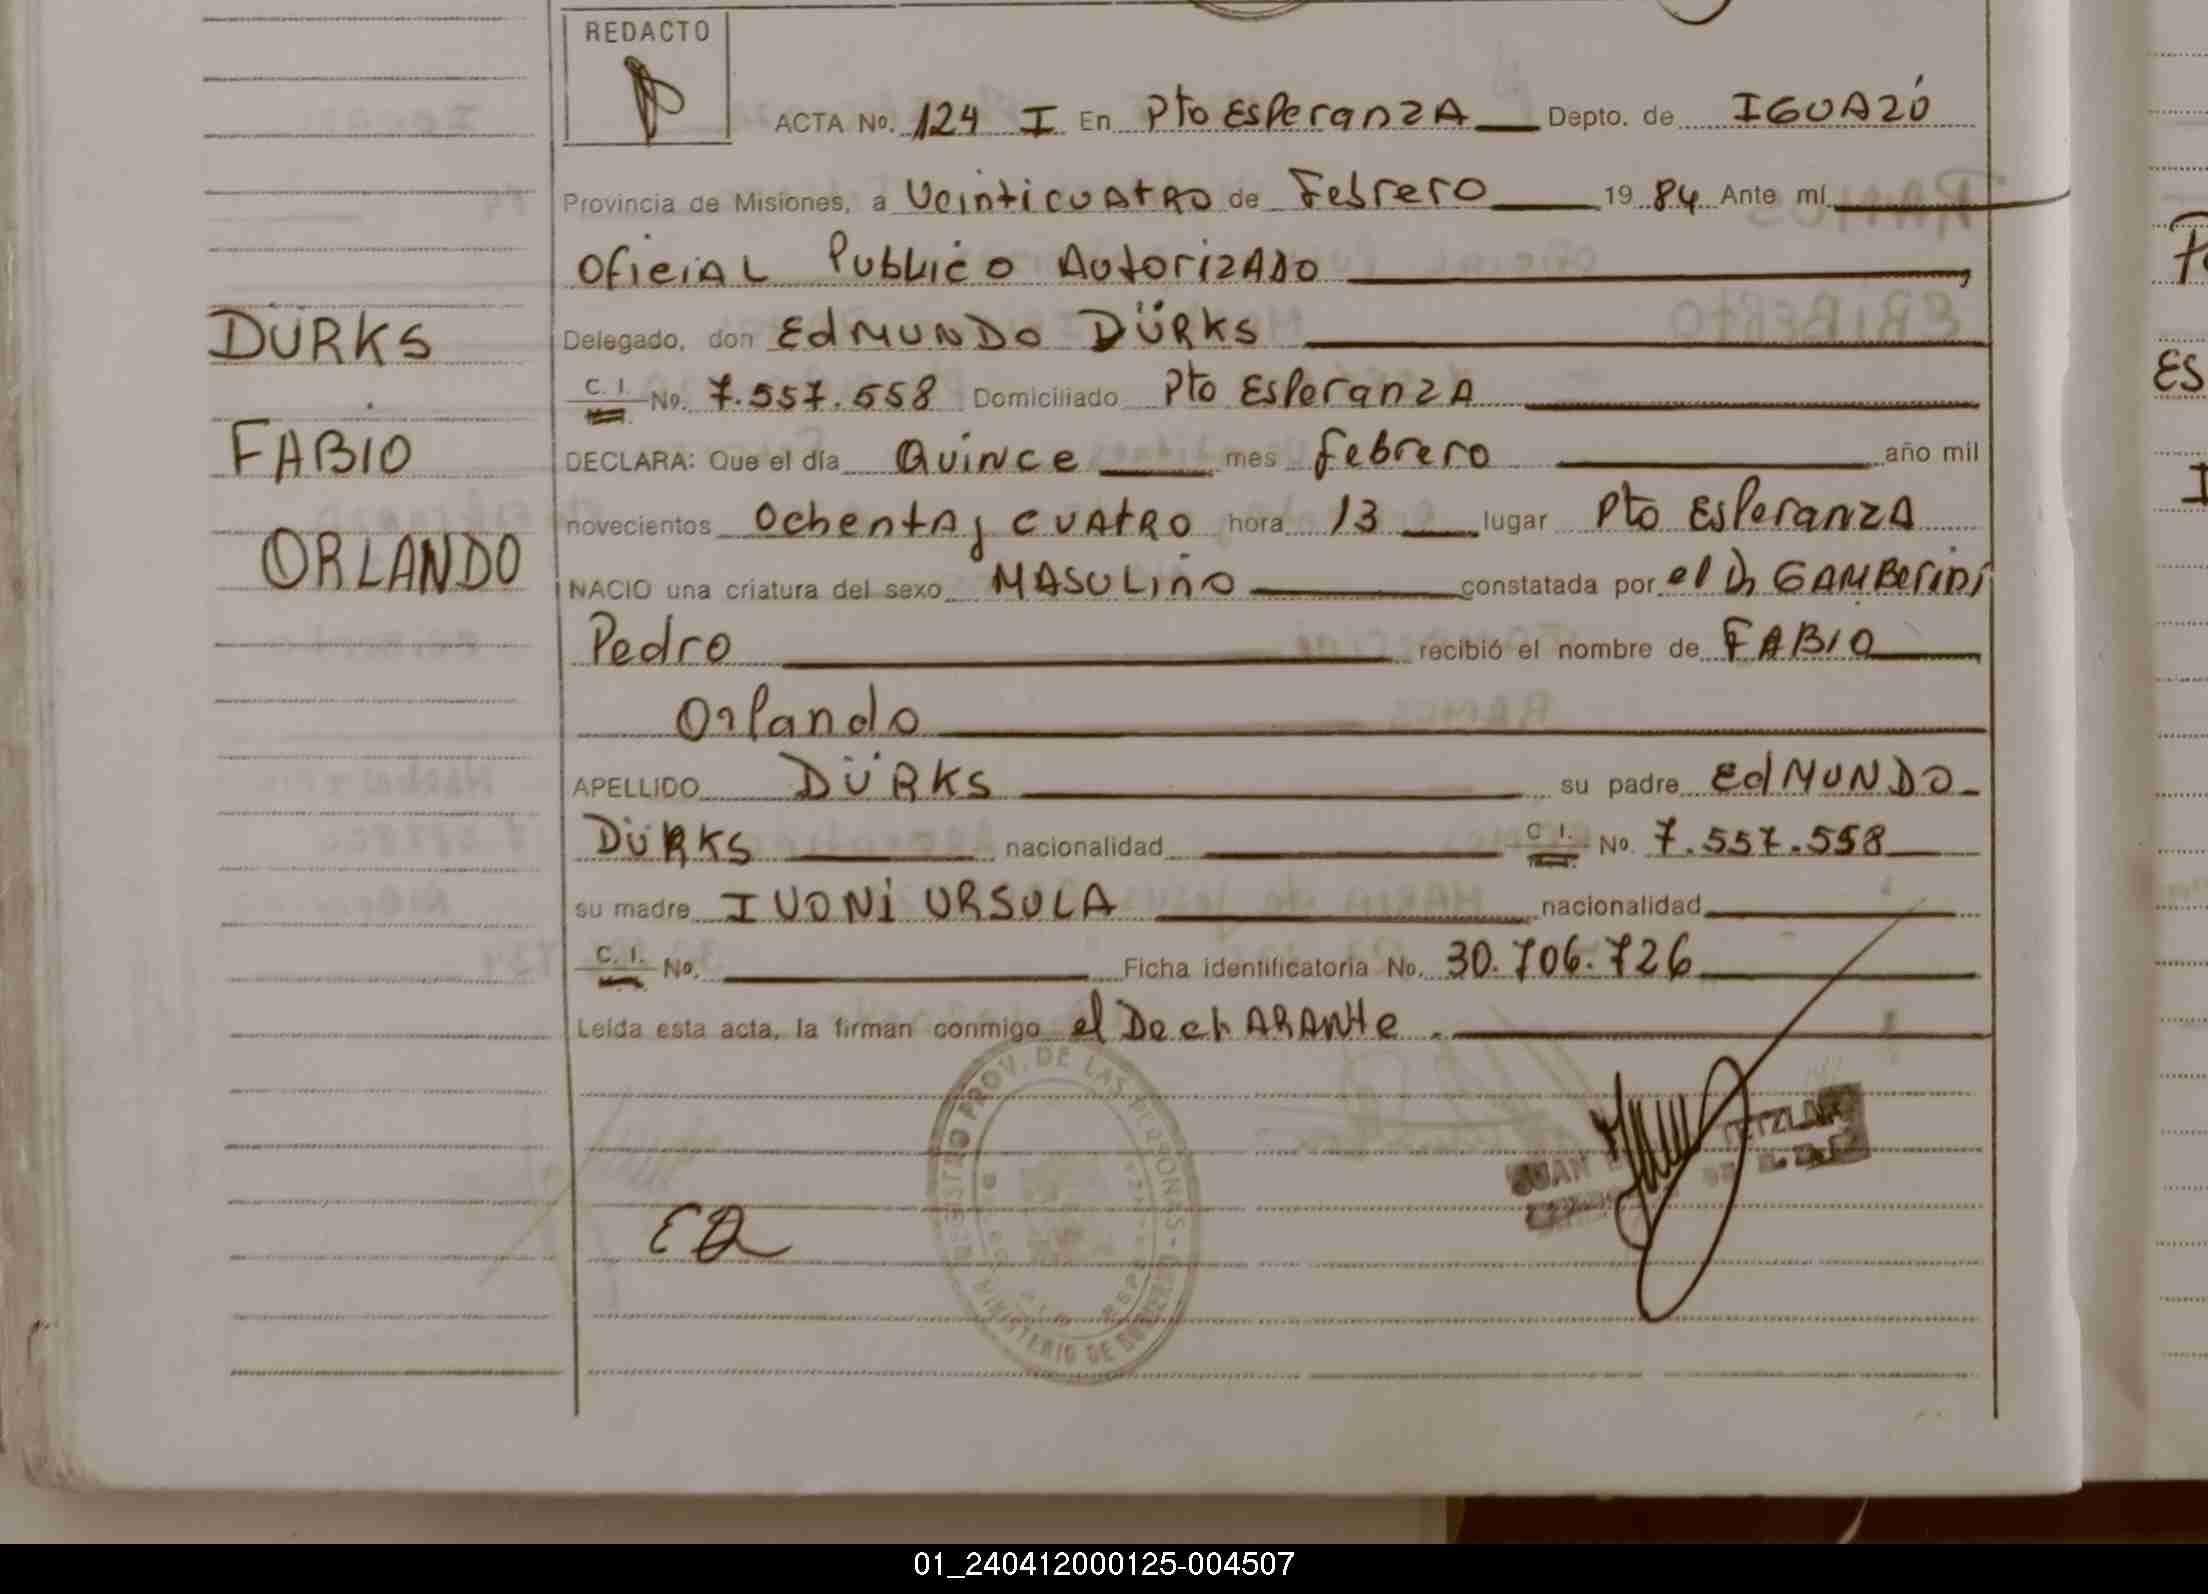 REDACTO
ACTA No. 124 I En Pto Esperanza Depto. de IGUAZÓ
Provincia de Misiones, a Veinticuatro de Febrero 19 84 Ante mí
Oficial Publico Autorizado ,
Delegado, don Edmundo DÜRKS
C. I. No. 7.557.558 Domiciliado Pto Esperanza
DECLARA: Que el día Quince mes febrero año mil
novecientos Ochenta y cuatro hora 13 lugar Pto Esperanza
NACIO una criatura del sexo MASULINO constatada por el Dr GAMBERINI
Pedro recibió el nombre de FABIO
Orlando
APELLIDO DÜRKS su padre Edmundo
DÜRKS nacionalidad C. I. No. 7.557.558
su madre IVONI URSULA nacionalidad
C. I. No. Ficha identificatoria No. 30.706.726
Leída esta acta, la firman conmigo el DechARANte.
DÜRKS
FABIO
ORLANDO
REGISTRO PROV. DE LAS PERSONAS
MINISTERIO DE GOBIERNO
JUAN
01_240412000125-004507